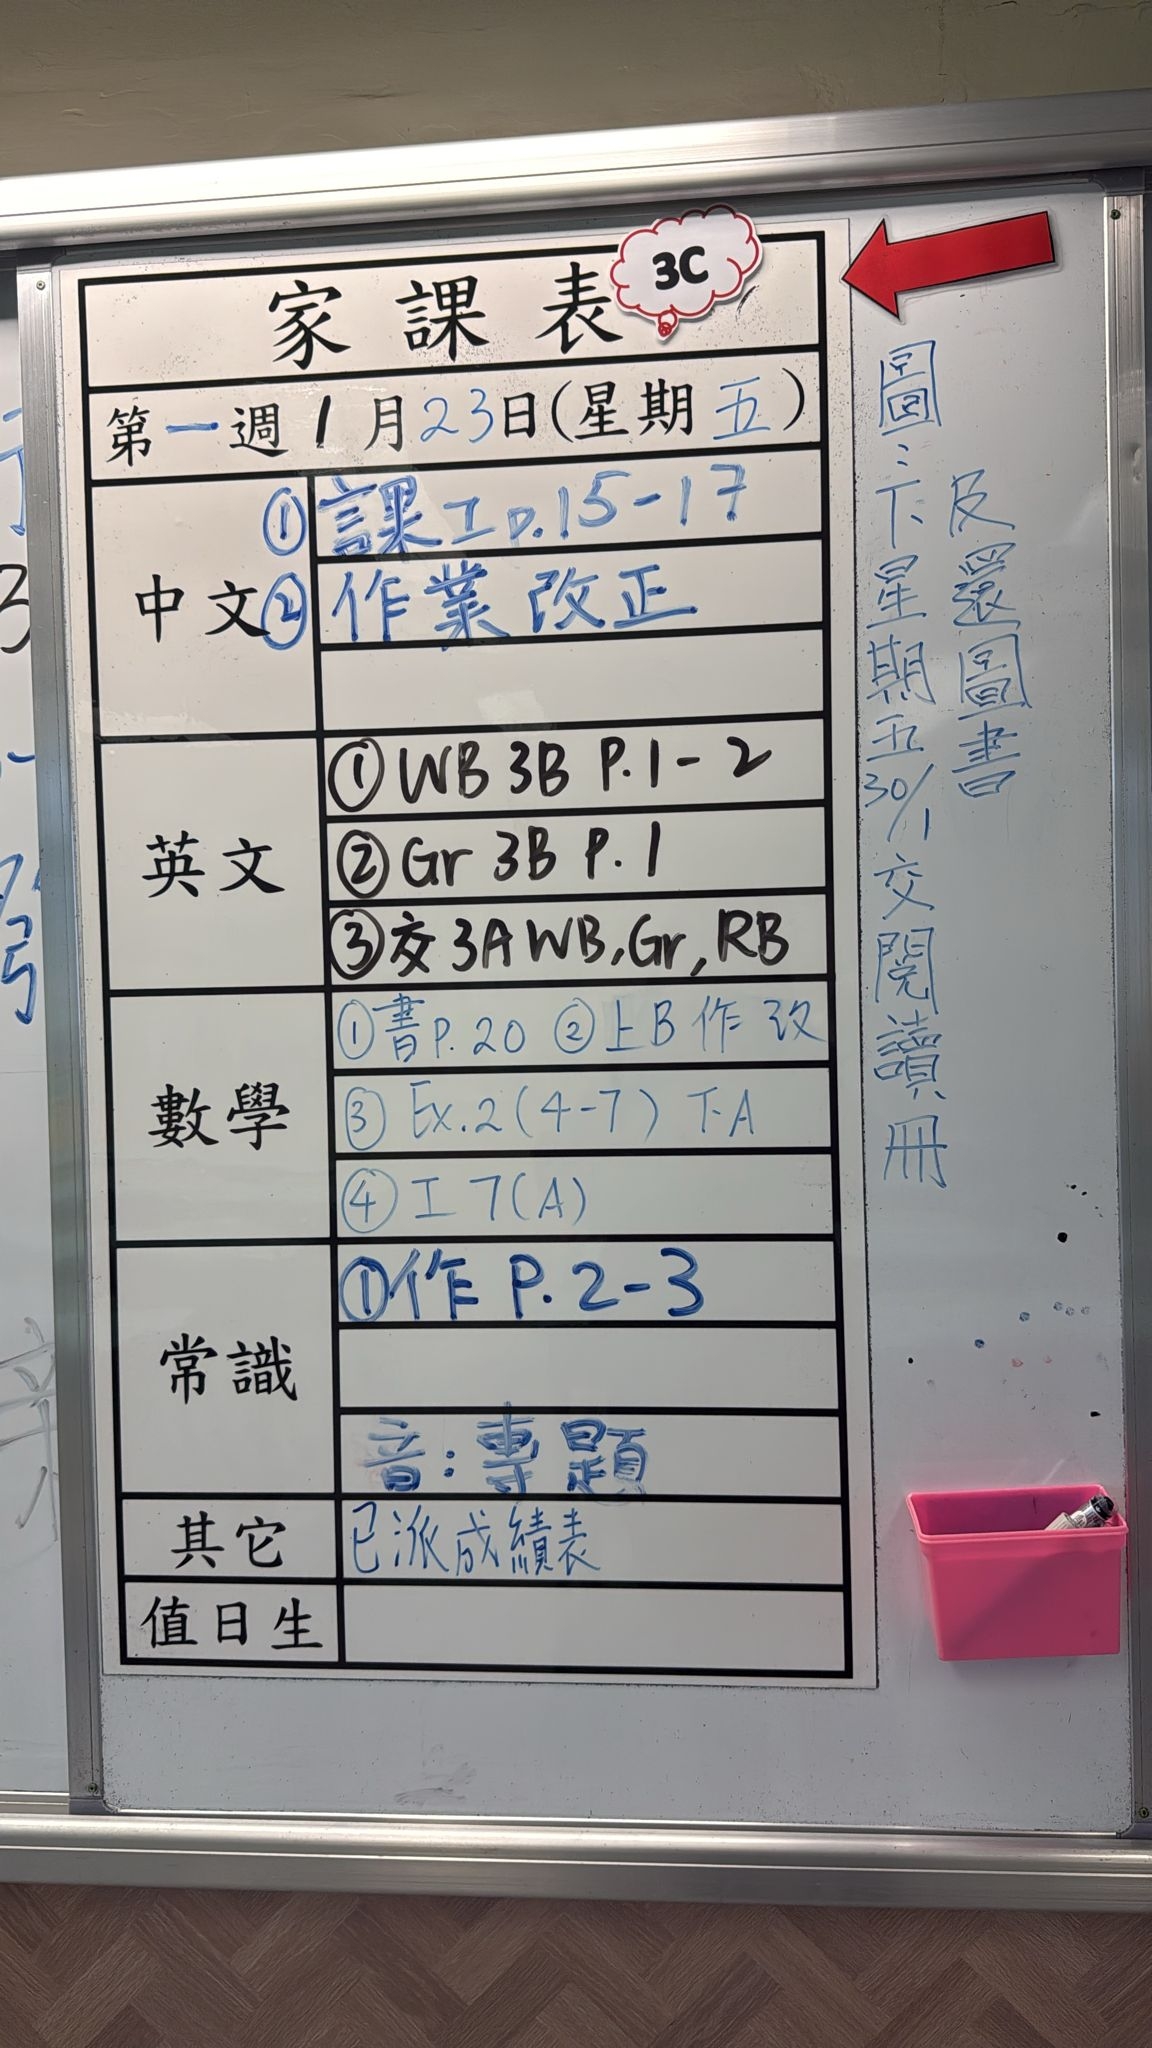 家課表
3C
第一週1月23日(星期五)
中文
①課工p.15-17
②作業改正
英文
①WB 3B P.1-2
②Gr 3B P.1
③交3A WB,Gr,RB
數學
①書P.20 ②上B作改
③Ex.2(4-7) 下A
④工7(A)
常識
①作 P.2-3
音:專題
其它
已派成績表
值日生
圖:下星期五30/1交閱讀冊
及還圖書